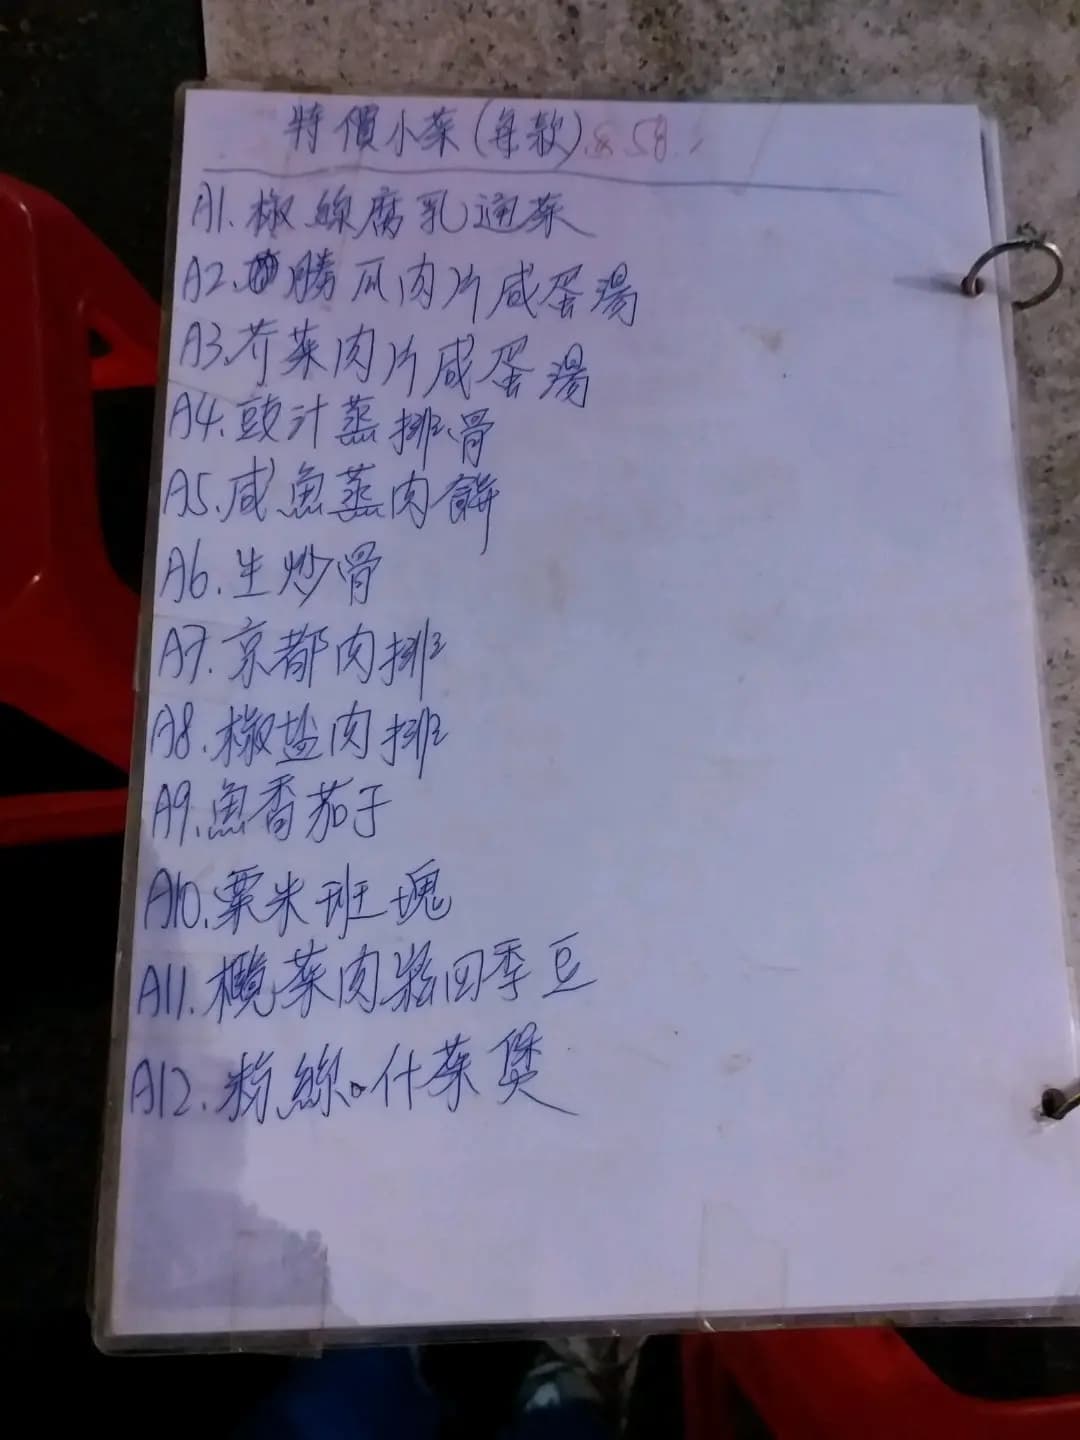 特價小菜(每款)$58
A1.椒絲腐乳通菜
A2.勝瓜肉片咸蛋湯
A3.芥菜肉片咸蛋湯
A4.豉汁蒸排骨
A5.咸魚蒸肉餅
A6.生炒骨
A7.京都肉排
A8.椒盐肉排
A9.魚香茄子
A10.粟米班塊
A11.欖菜肉鬆四季豆
A12.粉絲什菜煲